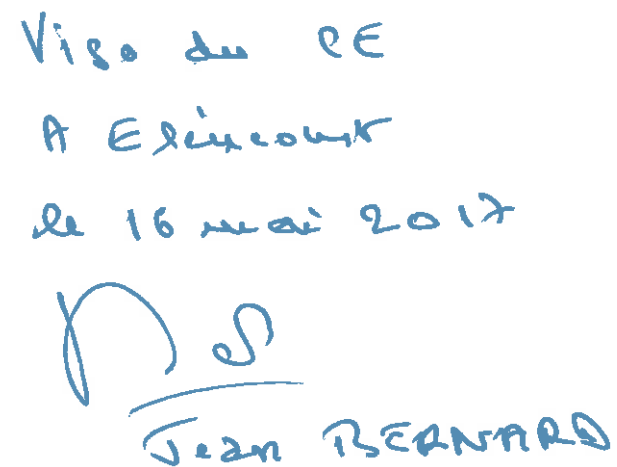 Visa du CE
A Elincourt
le 16 mai 2017
Jean BERNARD